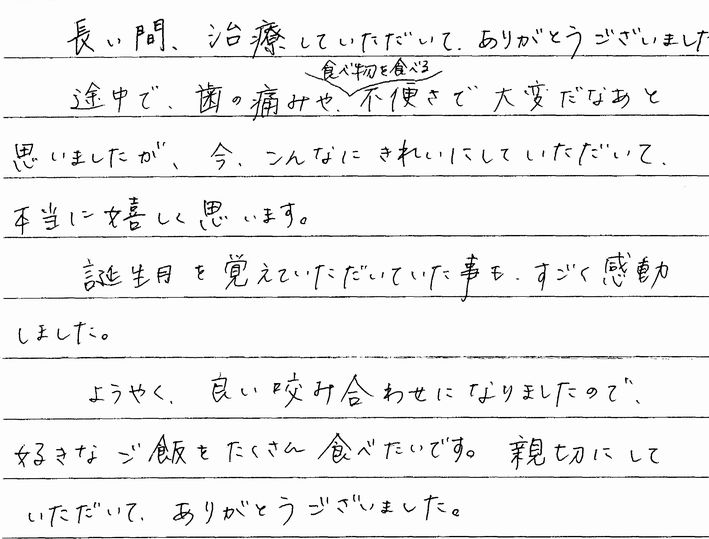 長い間、治療していただいて、ありがとうございました
食べ物を食べる
途中で、歯の痛みや、不便さで大変だなあと
思いましたが、今、こんなにきれいにしていただいて、
本当に嬉しく思います。
誕生月を覚えていただいていた事も、すごく感動
しました。
ようやく、良い咬み合わせになりましたので、
好きなご飯をたくさん食べたいです。親切にして
いただいて、ありがとうございました。